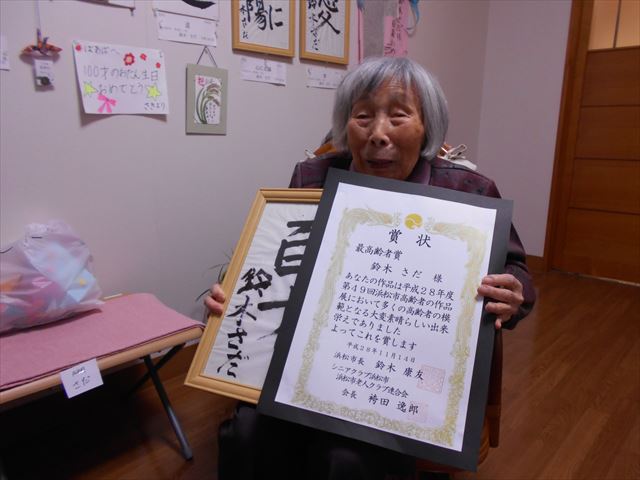 ばあばへ
100才のおたん生日
おめでとう
さきより
陽に
鈴木さだ
賞状
最高齢者賞
鈴木 さだ 様
あなたの作品は平成28年度
第49回浜松市高齢者の作品
展において多くの高齢者の模
範となる大変素晴らしい出来
栄えでありました
よってこれを賞します
平成28年11月14日
浜松市長 鈴木 康友
シニアクラブ浜松市
浜松市老人クラブ連合会
会長 袴田 逸郎
さだ